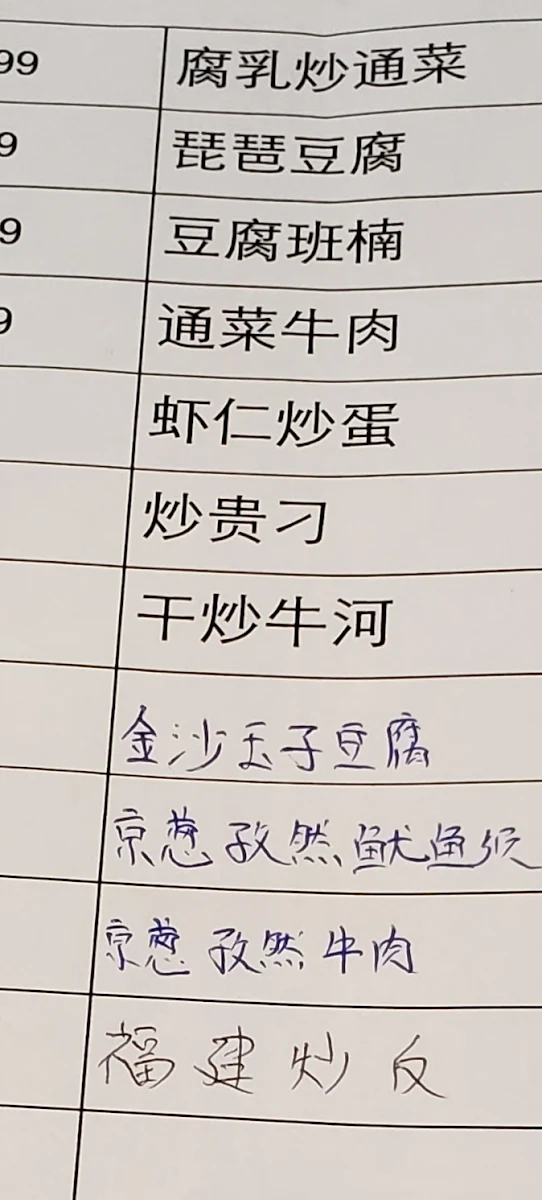 99 腐乳炒通菜
9 琵琶豆腐
9 豆腐班楠
9 通菜牛肉
虾仁炒蛋
炒贵刁
干炒牛河
金沙玉子豆腐
京葱孜然鱿鱼须
京葱孜然牛肉
福建炒反